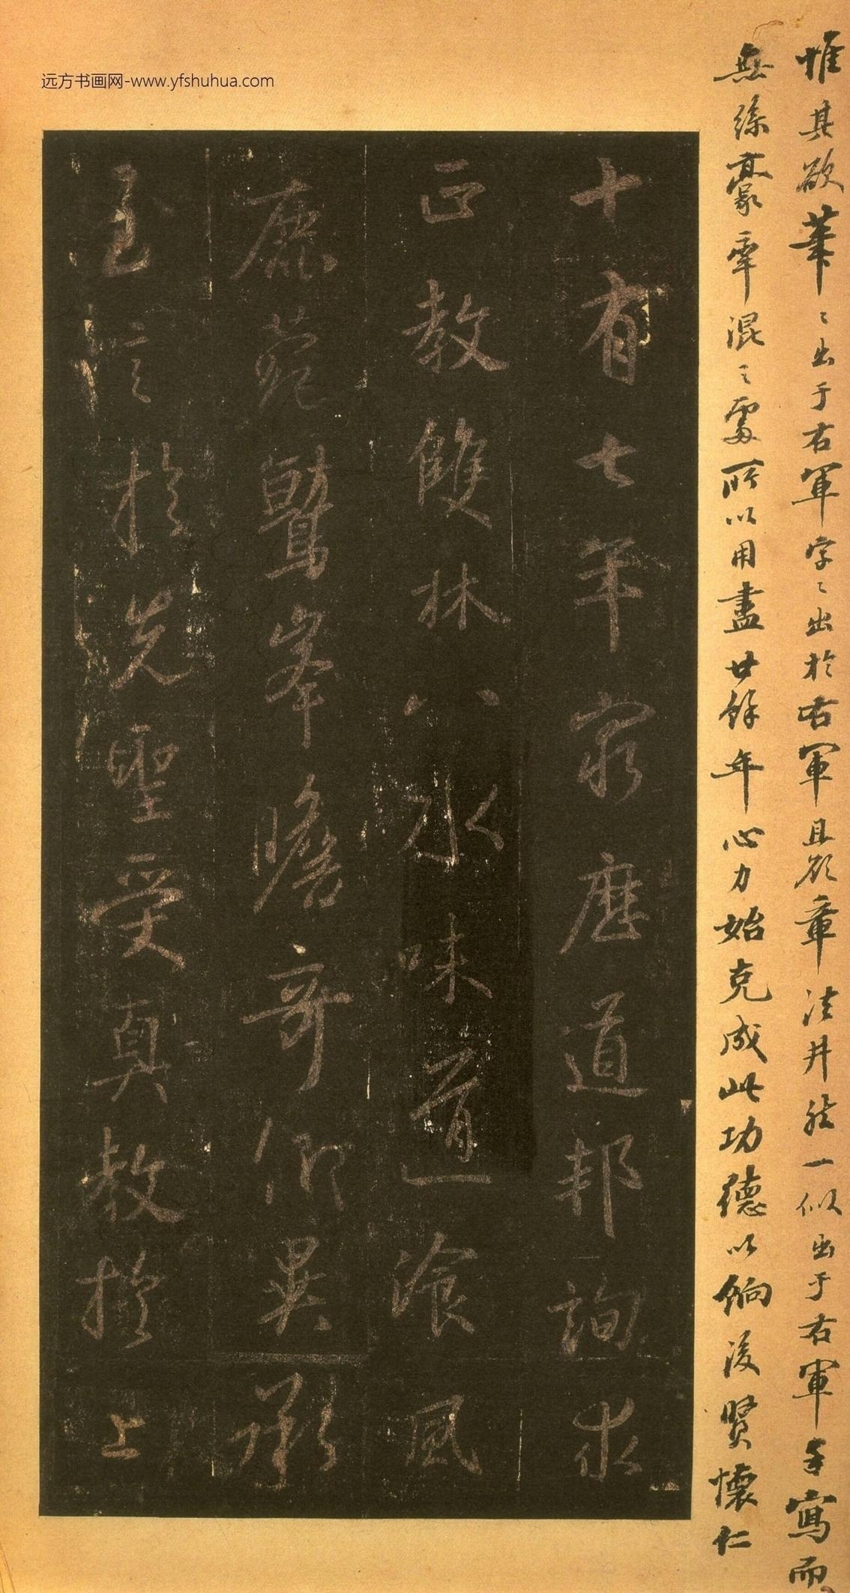 远方书画网-www.yfshuhua.com
惟其欲筆〻出于右軍字〻出於右軍且欲章法井然一似出于右軍手寫而
無絲毫牽混之處所以用盡廿餘年心力始克成此功德以餉後賢懷仁
十有七年窮歷道邦詢求
正教雙林八水味道飡風
鹿菀鷲峯瞻奇仰異承
至言於先聖受真教於上